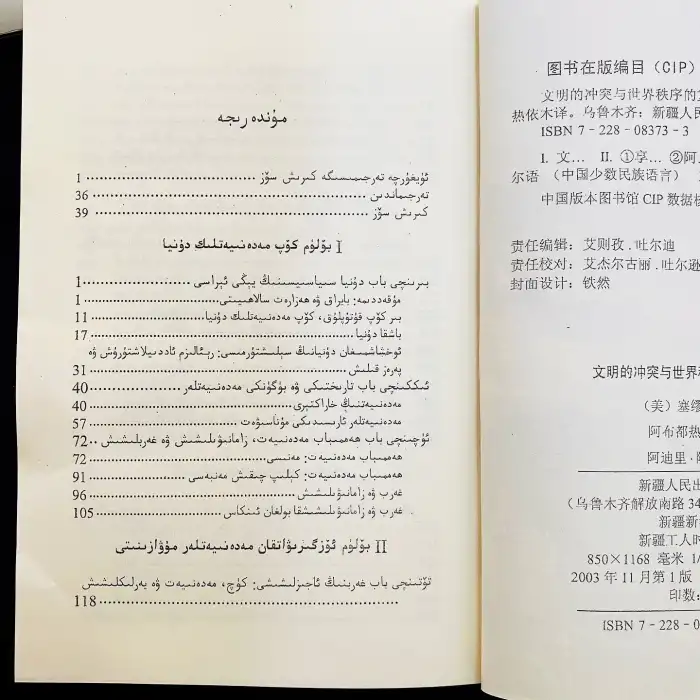 مۇندەرىجە
ئۇيغۇرچە تەرجىمىسىگە كىرىش سۆز 1
تەرجىماندىن 36
كىرىش سۆز 39
I بۆلۈم كۆپ مەدەنىيەتلىك دۇنيا
بىرىنچى باب دۇنيا سىياسىيسىنىڭ يېڭى ئېراسى 1
مۇقەددىمە: بايراق ۋە ھەزارەت سالاھىيىتى 1
بىر كۆپ قۇتۇپلۇق، كۆپ مەدەنىيەتلىك دۇنيا 11
باشقا دۇنيا 17
ئوخشاشمىغان دۇنيانىڭ سېلىشتۇرمىسى: رېئالىزم ئاددىيلاشتۇرۇش ۋە
پەرەز قىلىش 31
ئىككىنچى باب تارىختىكى ۋە بۈگۈنكى مەدەنىيەتلەر 40
مەدەنىيەتنىڭ خاراكتېرى 40
مەدەنىيەتلەر ئارىسىدىكى مۇناسىۋەت 57
ئۈچىنچى باب ھەممىباب مەدەنىيەت، زامانىۋىلىشىش ۋە غەربلىشىش 72
ھەممىباب مەدەنىيەت: مەنىسى 72
ھەممىباب مەدەنىيەت: كېلىپ چىقىش مەنبەسى 91
غەرب ۋە زامانىۋىلىشىش 96
غەرب ۋە زامانىۋىلىشىشقا بولغان ئىنكاس 105
II بۆلۈم ئۆزگىرىۋاتقان مەدەنىيەتلەر مۇۋازىنىتى
تۆتىنچى باب غەربنىڭ ئاجىزلىشىشى: كۈچ، مەدەنىيەت ۋە يەرلىكلىشىش
118
图书在版编目（CIP）
文明的冲突与世界秩序的
热依木译。乌鲁木齐：新疆人民
ISBN 7-228-08373-3
I. 文… II. ①享… ②阿
尔语（中国少数民族语言）
中国版本图书馆 CIP 数据核
责任编辑：艾则孜．吐尔迪
责任校对：艾杰尔古丽．吐尔逊
封面设计：铁然
文明的冲突与世界
（美）塞缪
阿布都热
阿迪里·
新疆人民出
（乌鲁木齐解放南路 34
新疆新
新疆工人时
850×1168 毫米 1/
2003 年 11 月第 1 版
印数：
ISBN 7-228-0